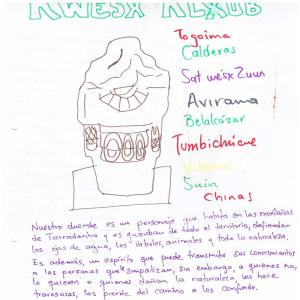 KWESX KLXUB
Togoima
Calderas
Sat wesx Zuun
Avirama
Belalcázar
Tumbichucue
Vitoncó
Suin
Chinas
Nuestro duende es un personaje que habita en las montañas
de Tierradentro y es guardian de todo el territorio, defienden
los ojos de agua, los árboles, animales y toda la naturaleza.
Es además, un espíritu que puede transmitir sus conocimientos
a las personas que simpatizan, sin embargo, a quienes no
lo quieren o quienes dañan la naturaleza, les hace
travesuras, los pierde del camino o los confunde.